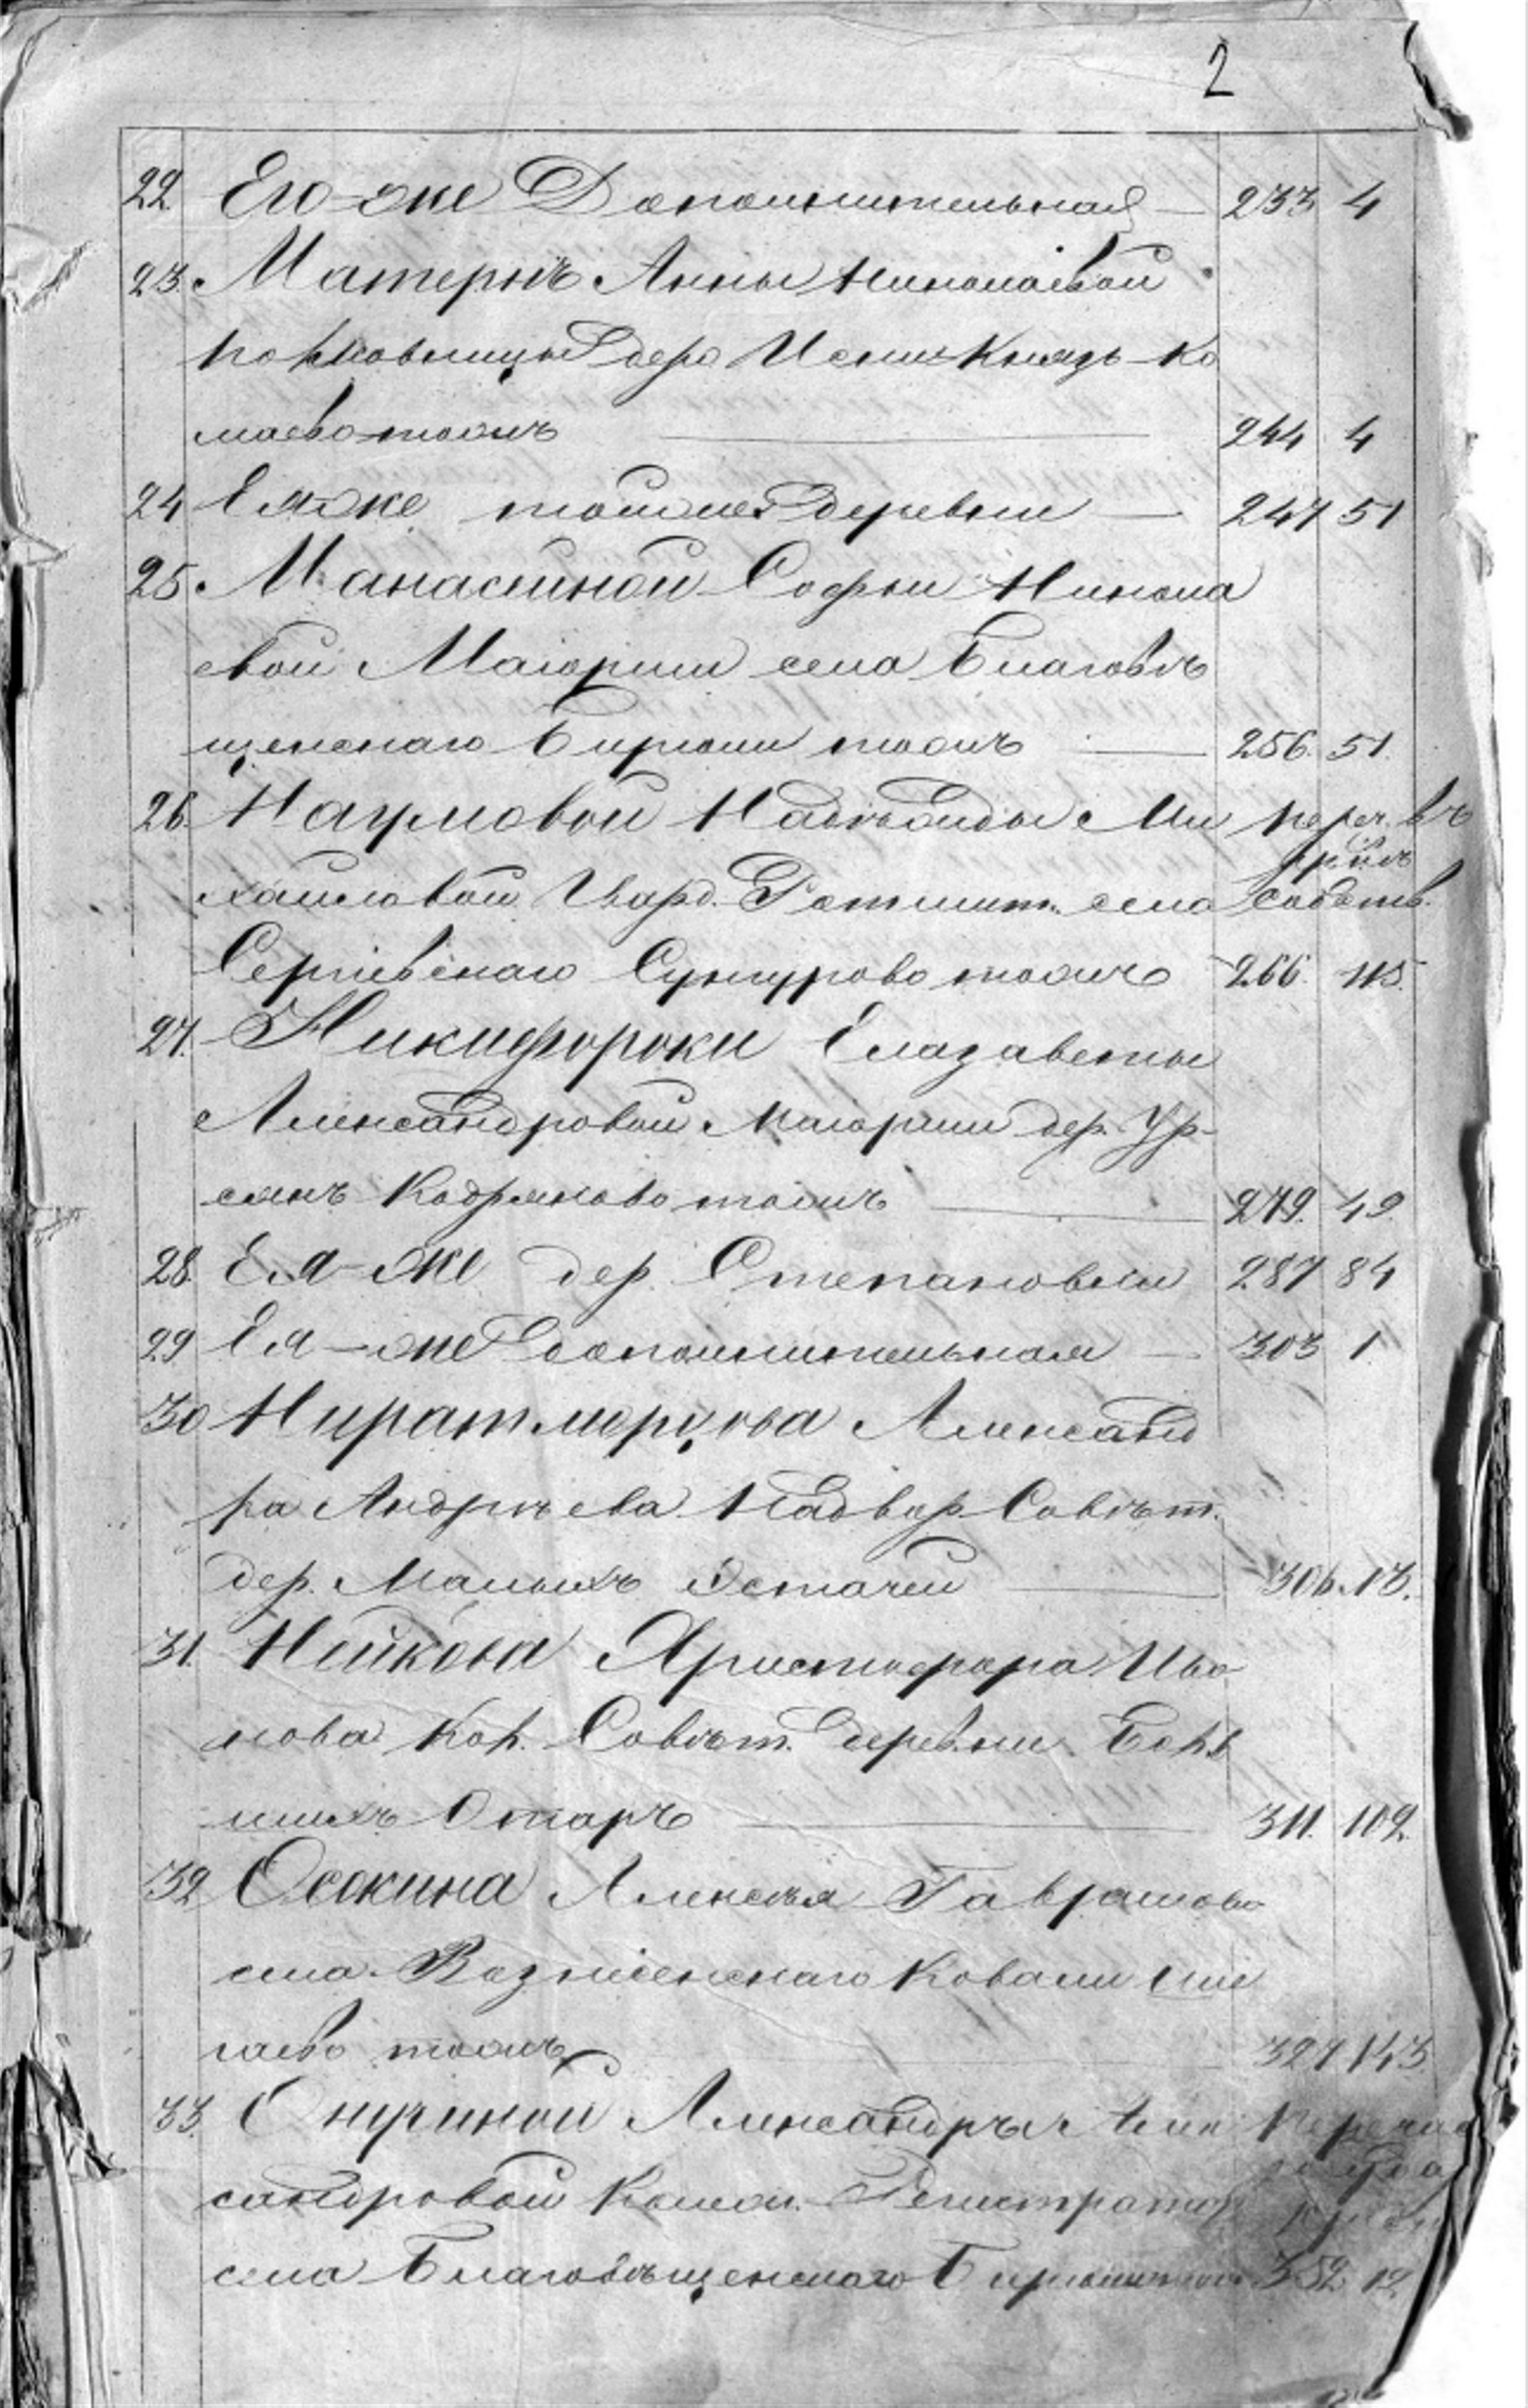 2
22. Его-же Дополнительная — 233 4
23. Матернъ Анны Николаевой
полковницы дер. Исли Князь-Ко
маево тожъ — 244 4
24 Ея-же тойже деревни — 247 51
25. Манасеиной Софьи Никола
евой Маіорши села Благовѣ
щенскаго Бирюли тожъ — 256. 51.
26. Наумовой Надѣжды Ми переч. въ
хайловой Гвард. Ротмист. села собств.
Сергіевскаго Сунчурово тожъ 266. 115.
27. Никифороки Елизаветы
Александровой Маіорши дер. Ур-
сякъ Кадряково тожъ — 279. 49.
28. Ея-же дер. Степановки 287 84
29 Ея-же дополнительная — 303 1.
30 Александ
ра Андрѣева Надвор. Совѣт.
дер. Малыхъ — 306. 18.
31. Нейкова Христофора Ива
нова Кол. Совѣт. деревни Боль
шихъ Отаръ — 311. 102.
32 Осокина Алексѣя Гаврилова
села Вознесенскаго Ковали
тожъ 327 143.
33. Александры Алек
сандровой Коллеж. Регистратор
села Благовѣщенскаго 352. 12.